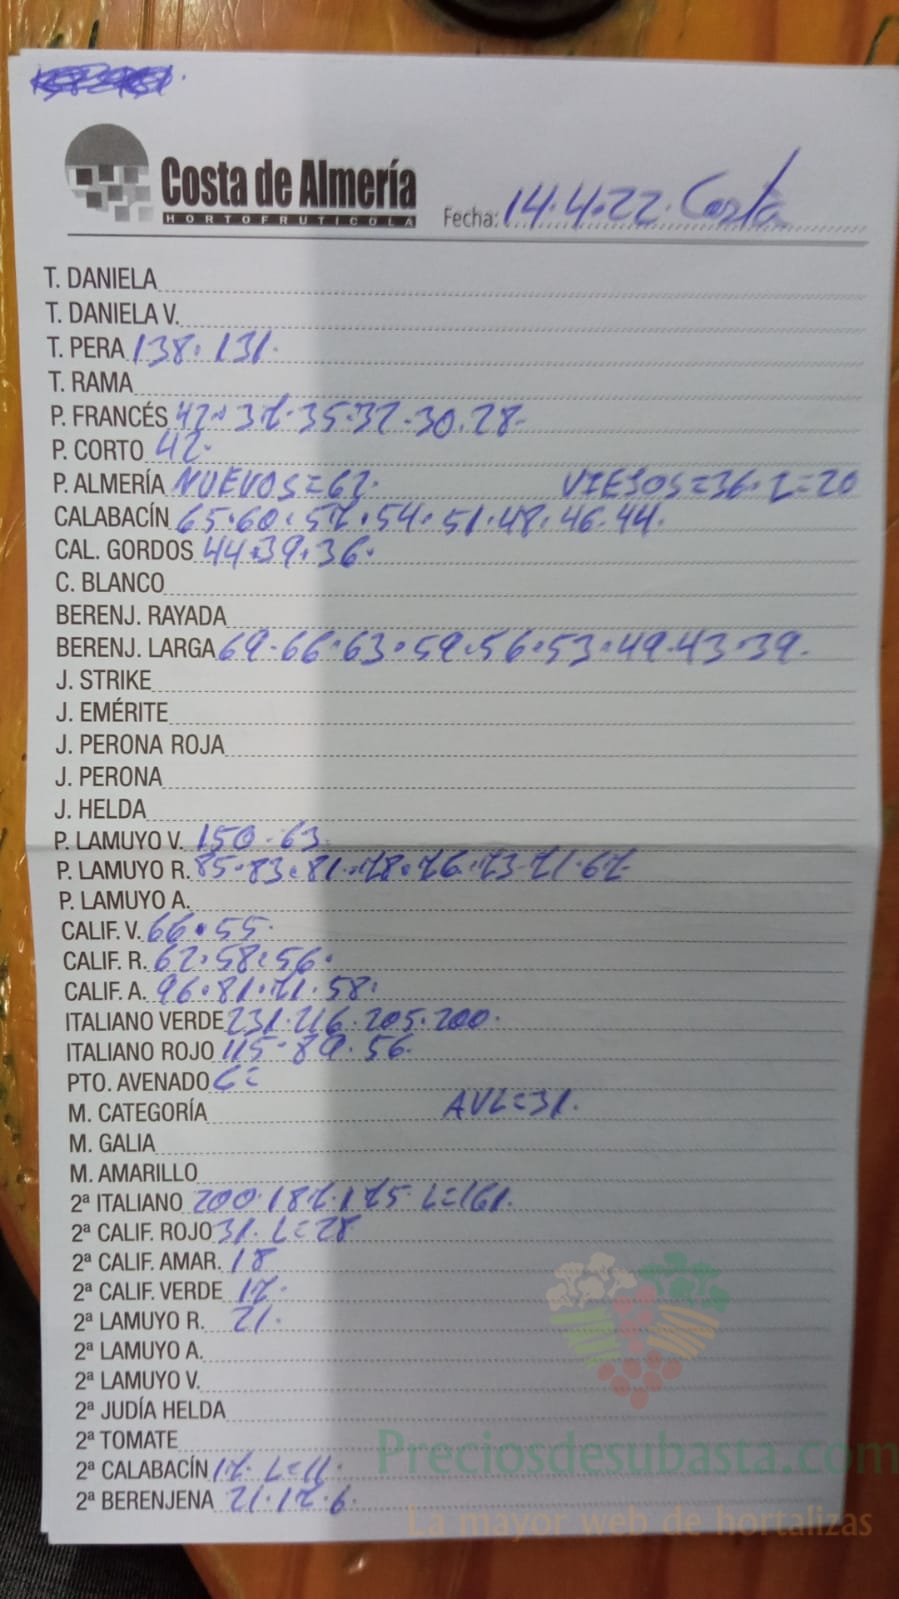 Costa de Almería
HORTOFRUTICOLA
Fecha: 14.4.22. Costa
T. DANIELA
T. DANIELA V.
T. PERA 138. 131.
T. RAMA
P. FRANCÉS 42. 37. 35. 32. 30. 28-
P. CORTO 42.
P. ALMERÍA NUEVOS=62. VIESOS=36. L=20
CALABACÍN 65. 60. 57. 54. 51. 48. 46. 44.
CAL. GORDOS 44. 39. 36.
C. BLANCO
BERENJ. RAYADA
BERENJ. LARGA 69. 66. 63. 59. 56. 53. 49. 43. 39.
J. STRIKE
J. EMÉRITE
J. PERONA ROJA
J. PERONA
J. HELDA
P. LAMUYO V. 150. 63.
P. LAMUYO R. 85. 83. 81. 78. 76. 73. 71. 67
P. LAMUYO A.
CALIF. V. 66. 55.
CALIF. R. 62. 58. 56.
CALIF. A. 96. 81. 71. 58.
ITALIANO VERDE 231. 216. 205. 200.
ITALIANO ROJO 115. 89. 56.
PTO. AVENADO C=
M. CATEGORÍA AVL=31.
M. GALIA
M. AMARILLO
2ª ITALIANO 200. 187. 175. L=161.
2ª CALIF. ROJO 31. L=28
2ª CALIF. AMAR. 18
2ª CALIF. VERDE 17.
2ª LAMUYO R. 21.
2ª LAMUYO A.
2ª LAMUYO V.
2ª JUDÍA HELDA
2ª TOMATE
2ª CALABACÍN 17. L=11.
2ª BERENJENA 21. 17. 6.
Preciosdesubasta.com
La mayor web de hortalizas